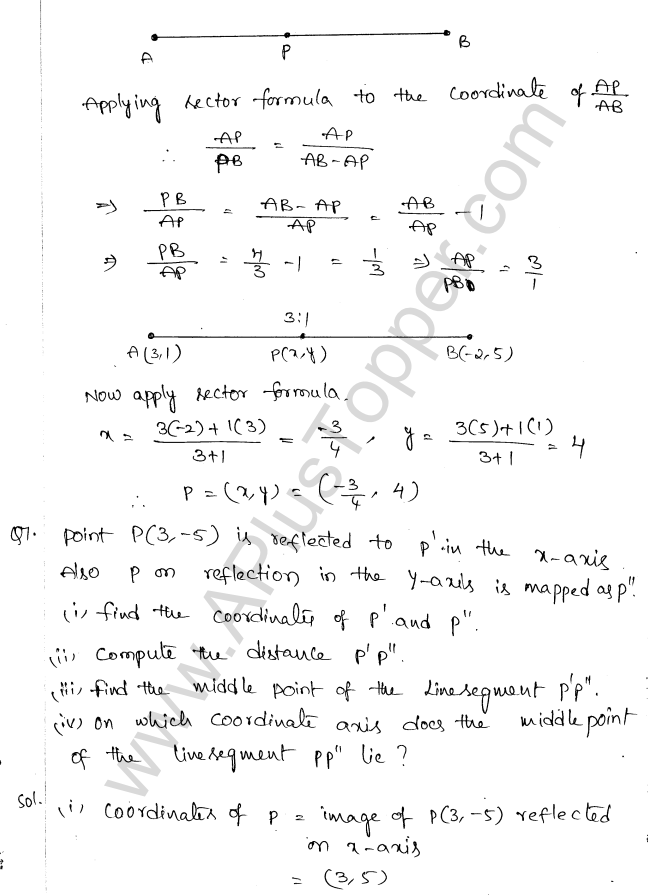 A P B
Applying sector formula to the coordinate of AP/AB
∴ AP/PB = AP/(AB-AP)
⇒ PB/AP = (AB-AP)/AP = AB/AP - 1
⇒ PB/AP = 4/3 - 1 = 1/3 ⇒ AP/PB = 3/1
3:1
A(3,1) P(x,y) B(-2,5)
Now apply sector formula.
x = (3(-2)+1(3))/(3+1) = -3/4, y = (3(5)+1(1))/(3+1) = 4
∴ P = (x,y) = (-3/4, 4)
Q7. Point P(3,-5) is reflected to p' in the x-axis.
Also P on reflection in the y-axis is mapped as p".
(i) find the coordinates of p' and p".
(ii) compute the distance p'p".
(iii) find the middle point of the linesegment p'p".
(iv) on which coordinate axis does the middle point
of the linesegment pp" lie?
Sol. (i) coordinates of p = image of p(3,-5) reflected
on x-axis
= (3,5)
www.APlusTopper.com